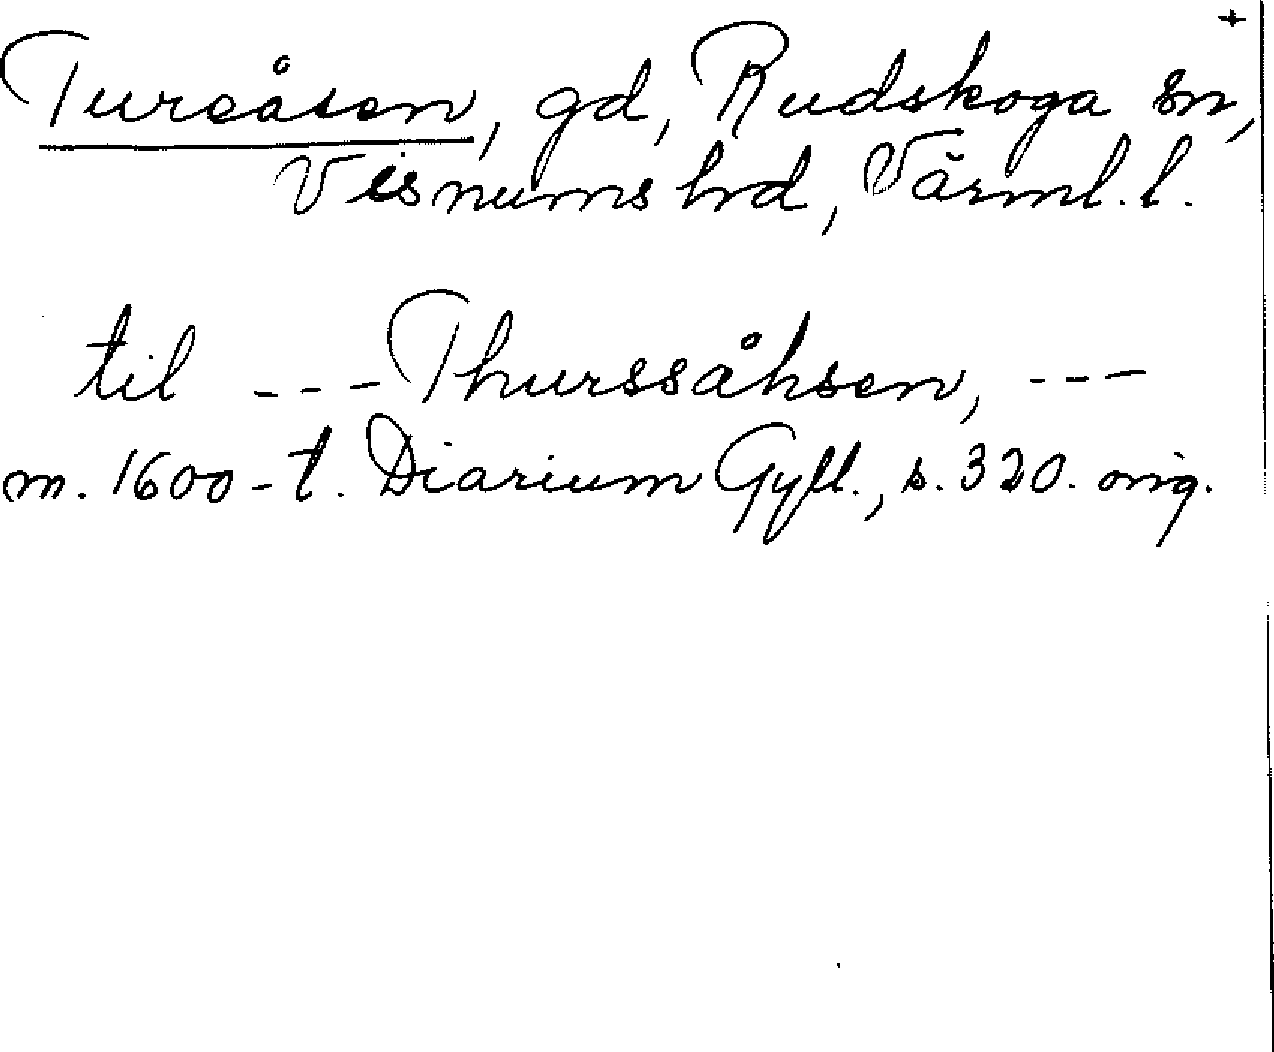 +
Tureåsen, gd, Rudskoga sn,
Visnums hd, Värml. l.
til --- Thurssåhsen, ---
m. 1600-t. Diarium Gyll., s. 320. orig.